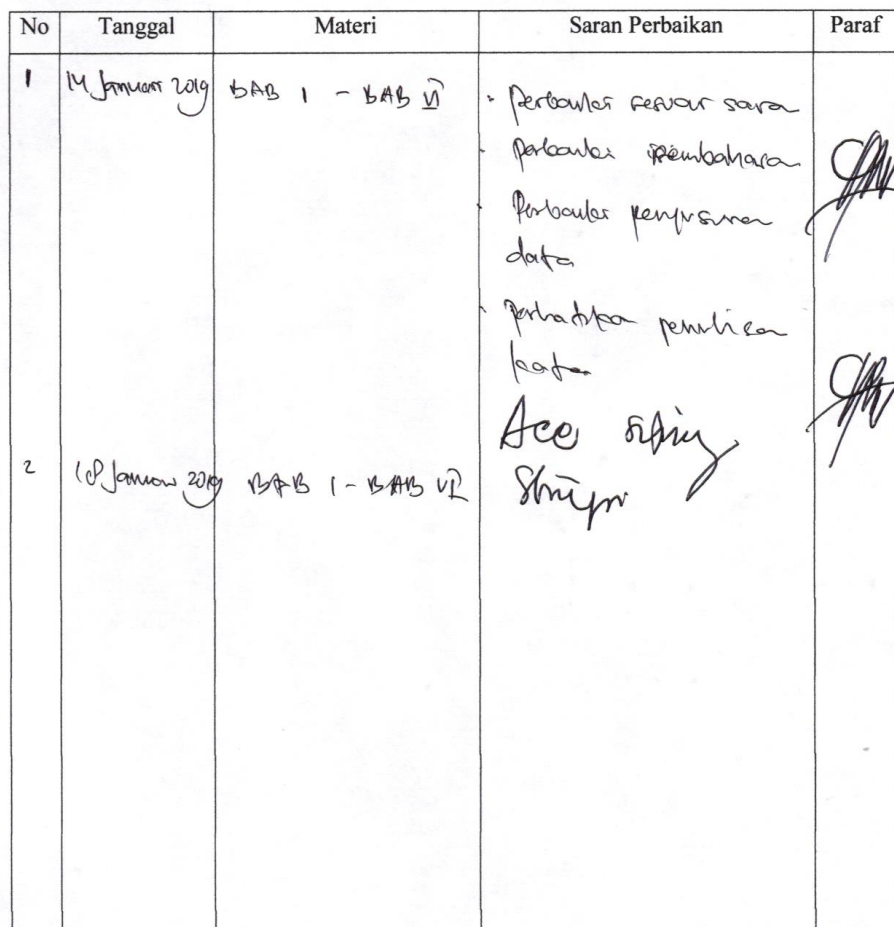 No Tanggal Materi Saran Perbaikan Paraf
1 14 Januari 2019 BAB I - BAB VI - Perbaiki sesuai saran
- Perbaiki pembahasan
- Perbaiki penyusunan
data
- Perhatikan penulisan
kata
2 18 Januari 2019 BAB I - BAB VI Acc sidang
Skripsi